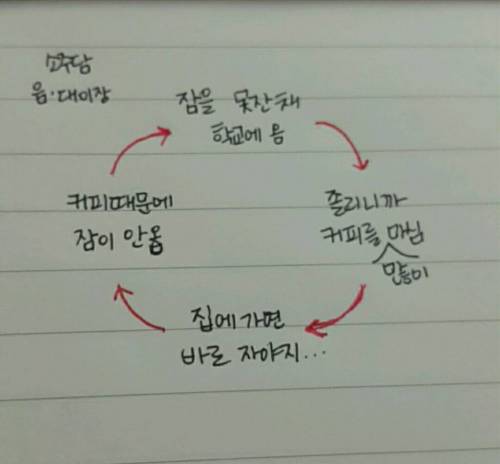 잠을 못잔채
학교에 옴
졸리니까
커피를 마심
많이
집에가면
바로 자야지...
커피때문에
잠이 안옴